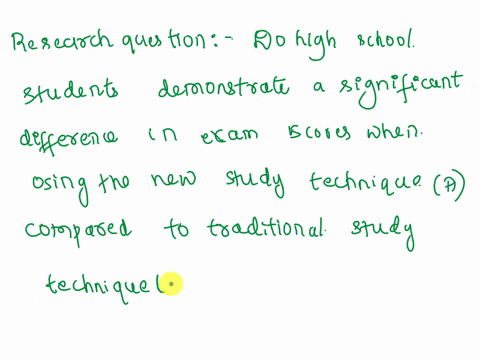 Research question:- Do high school
students demonstrate a significant
difference in exam scores when
using the new study technique (A)
compared to traditional study
technique (